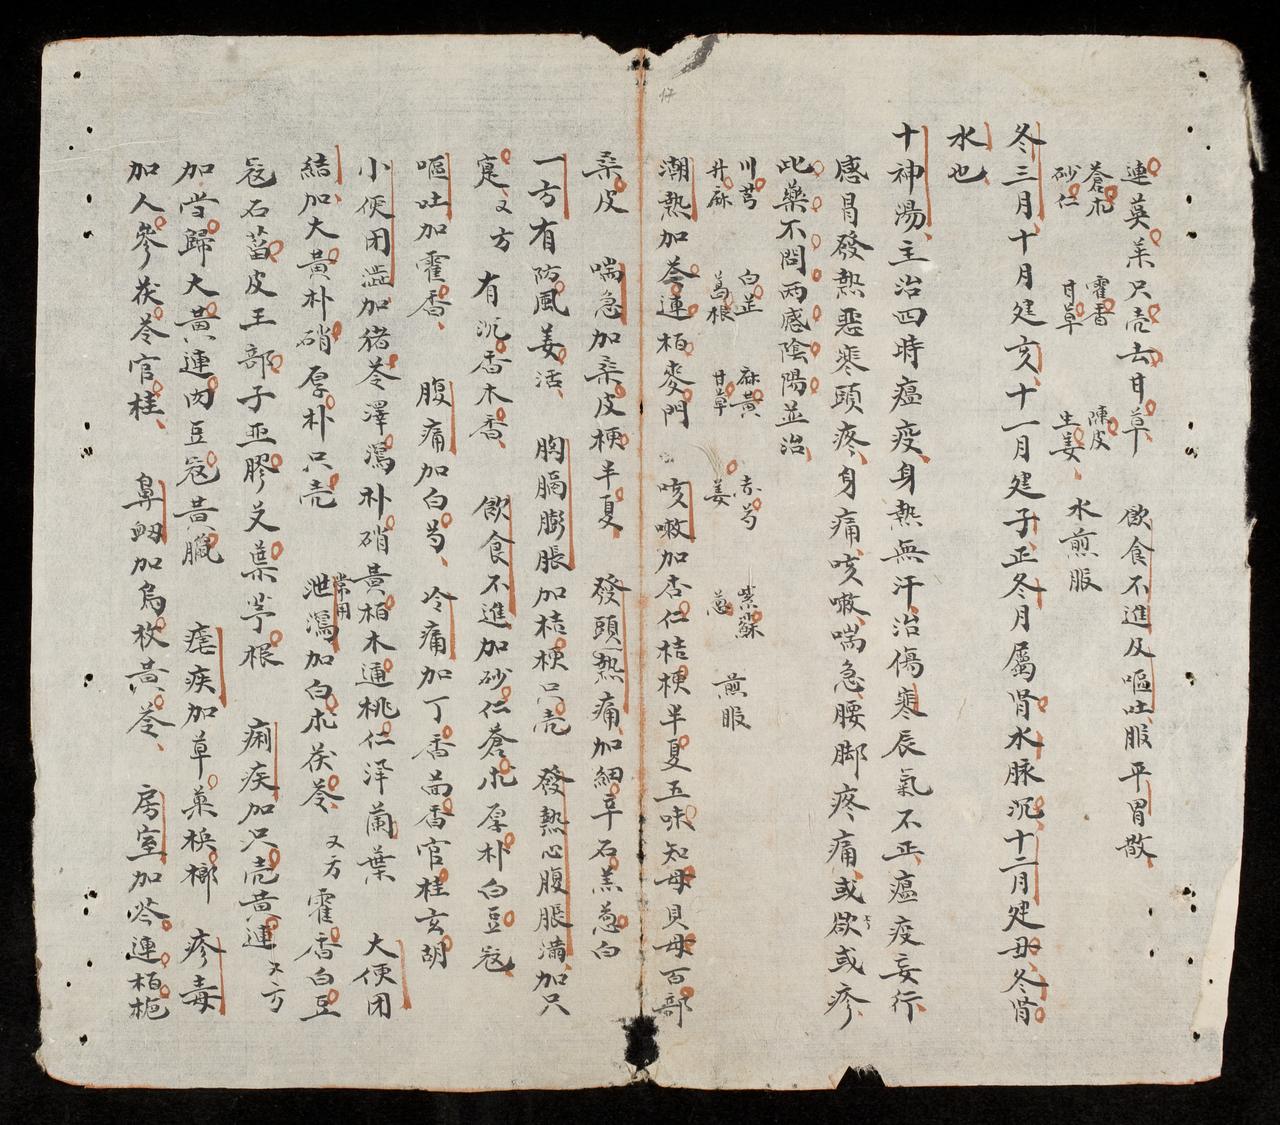 連萸朮只壳去甘草　飲食不進及嘔吐服平胃散
蒼朮　霍香　陳皮
砂仁　甘草　生姜　水煎服
冬三月十月建亥十一月建子正冬月屬腎水脉沉十二月建丑冬腎
水也
十神湯主治四時瘟疫身熱無汗治傷寒辰氣不正瘟疫妄行
感冒發熱惡寒頭疼身痛咳嗽喘急腰脚疼痛或欬或疹
此藥不問両感陰陽並治
川芎　白芷　麻黄　赤芍　紫蘇
升麻　葛根　甘草　姜　葱　煎服
潮熱加芩連栢麥門　咳嗽加杏仁桔梗半夏五味知母貝母百部
桑皮　喘急加桑皮梗半夏　發頭熱痛加細辛石羔葱白
一方有防風羌活　胸膈膨脹加桔梗只壳　發熱心腹脹満加只
寔又方　有沉香木香　飲食不進加砂仁蒼朮厚朴白豆寇
嘔吐加霍香　腹痛加白芍　冷痛加丁香茴香官桂玄胡
小便闭澁加猪苓澤瀉朴硝黄栢木通桃仁泽蘭葉　大便闭
結加大黄朴硝厚朴只壳　常用泄瀉加白朮茯苓　又方霍香白豆
寇石菖皮五部子亚膠艾葉茅根　痢疾加只壳黄連又方
加當歸大黄連肉豆寇黄臘　瘧疾加草菓梹榔　疹毒
加人參茯苓官桂　鼻衂加烏枚黄苓　房室加芩連栢栀